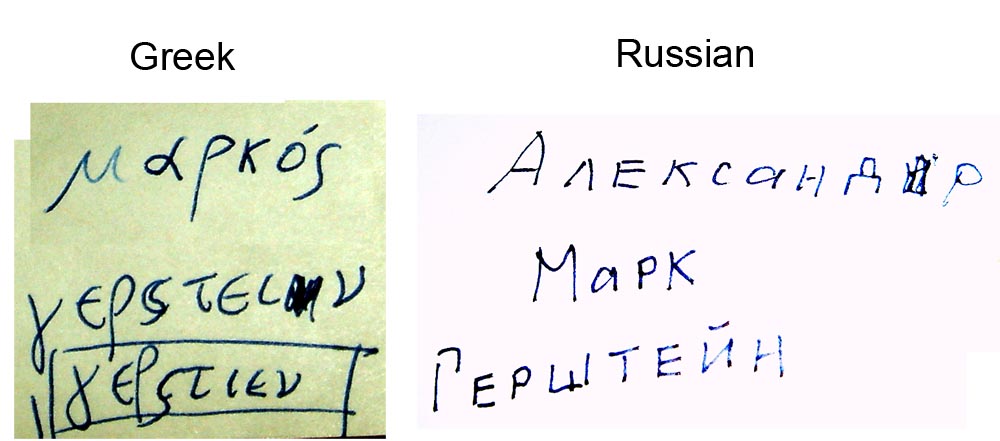 Greek
μαρκός
γερςτειν
γερςτιεν
Russian
Александр
Марк
Герштейн